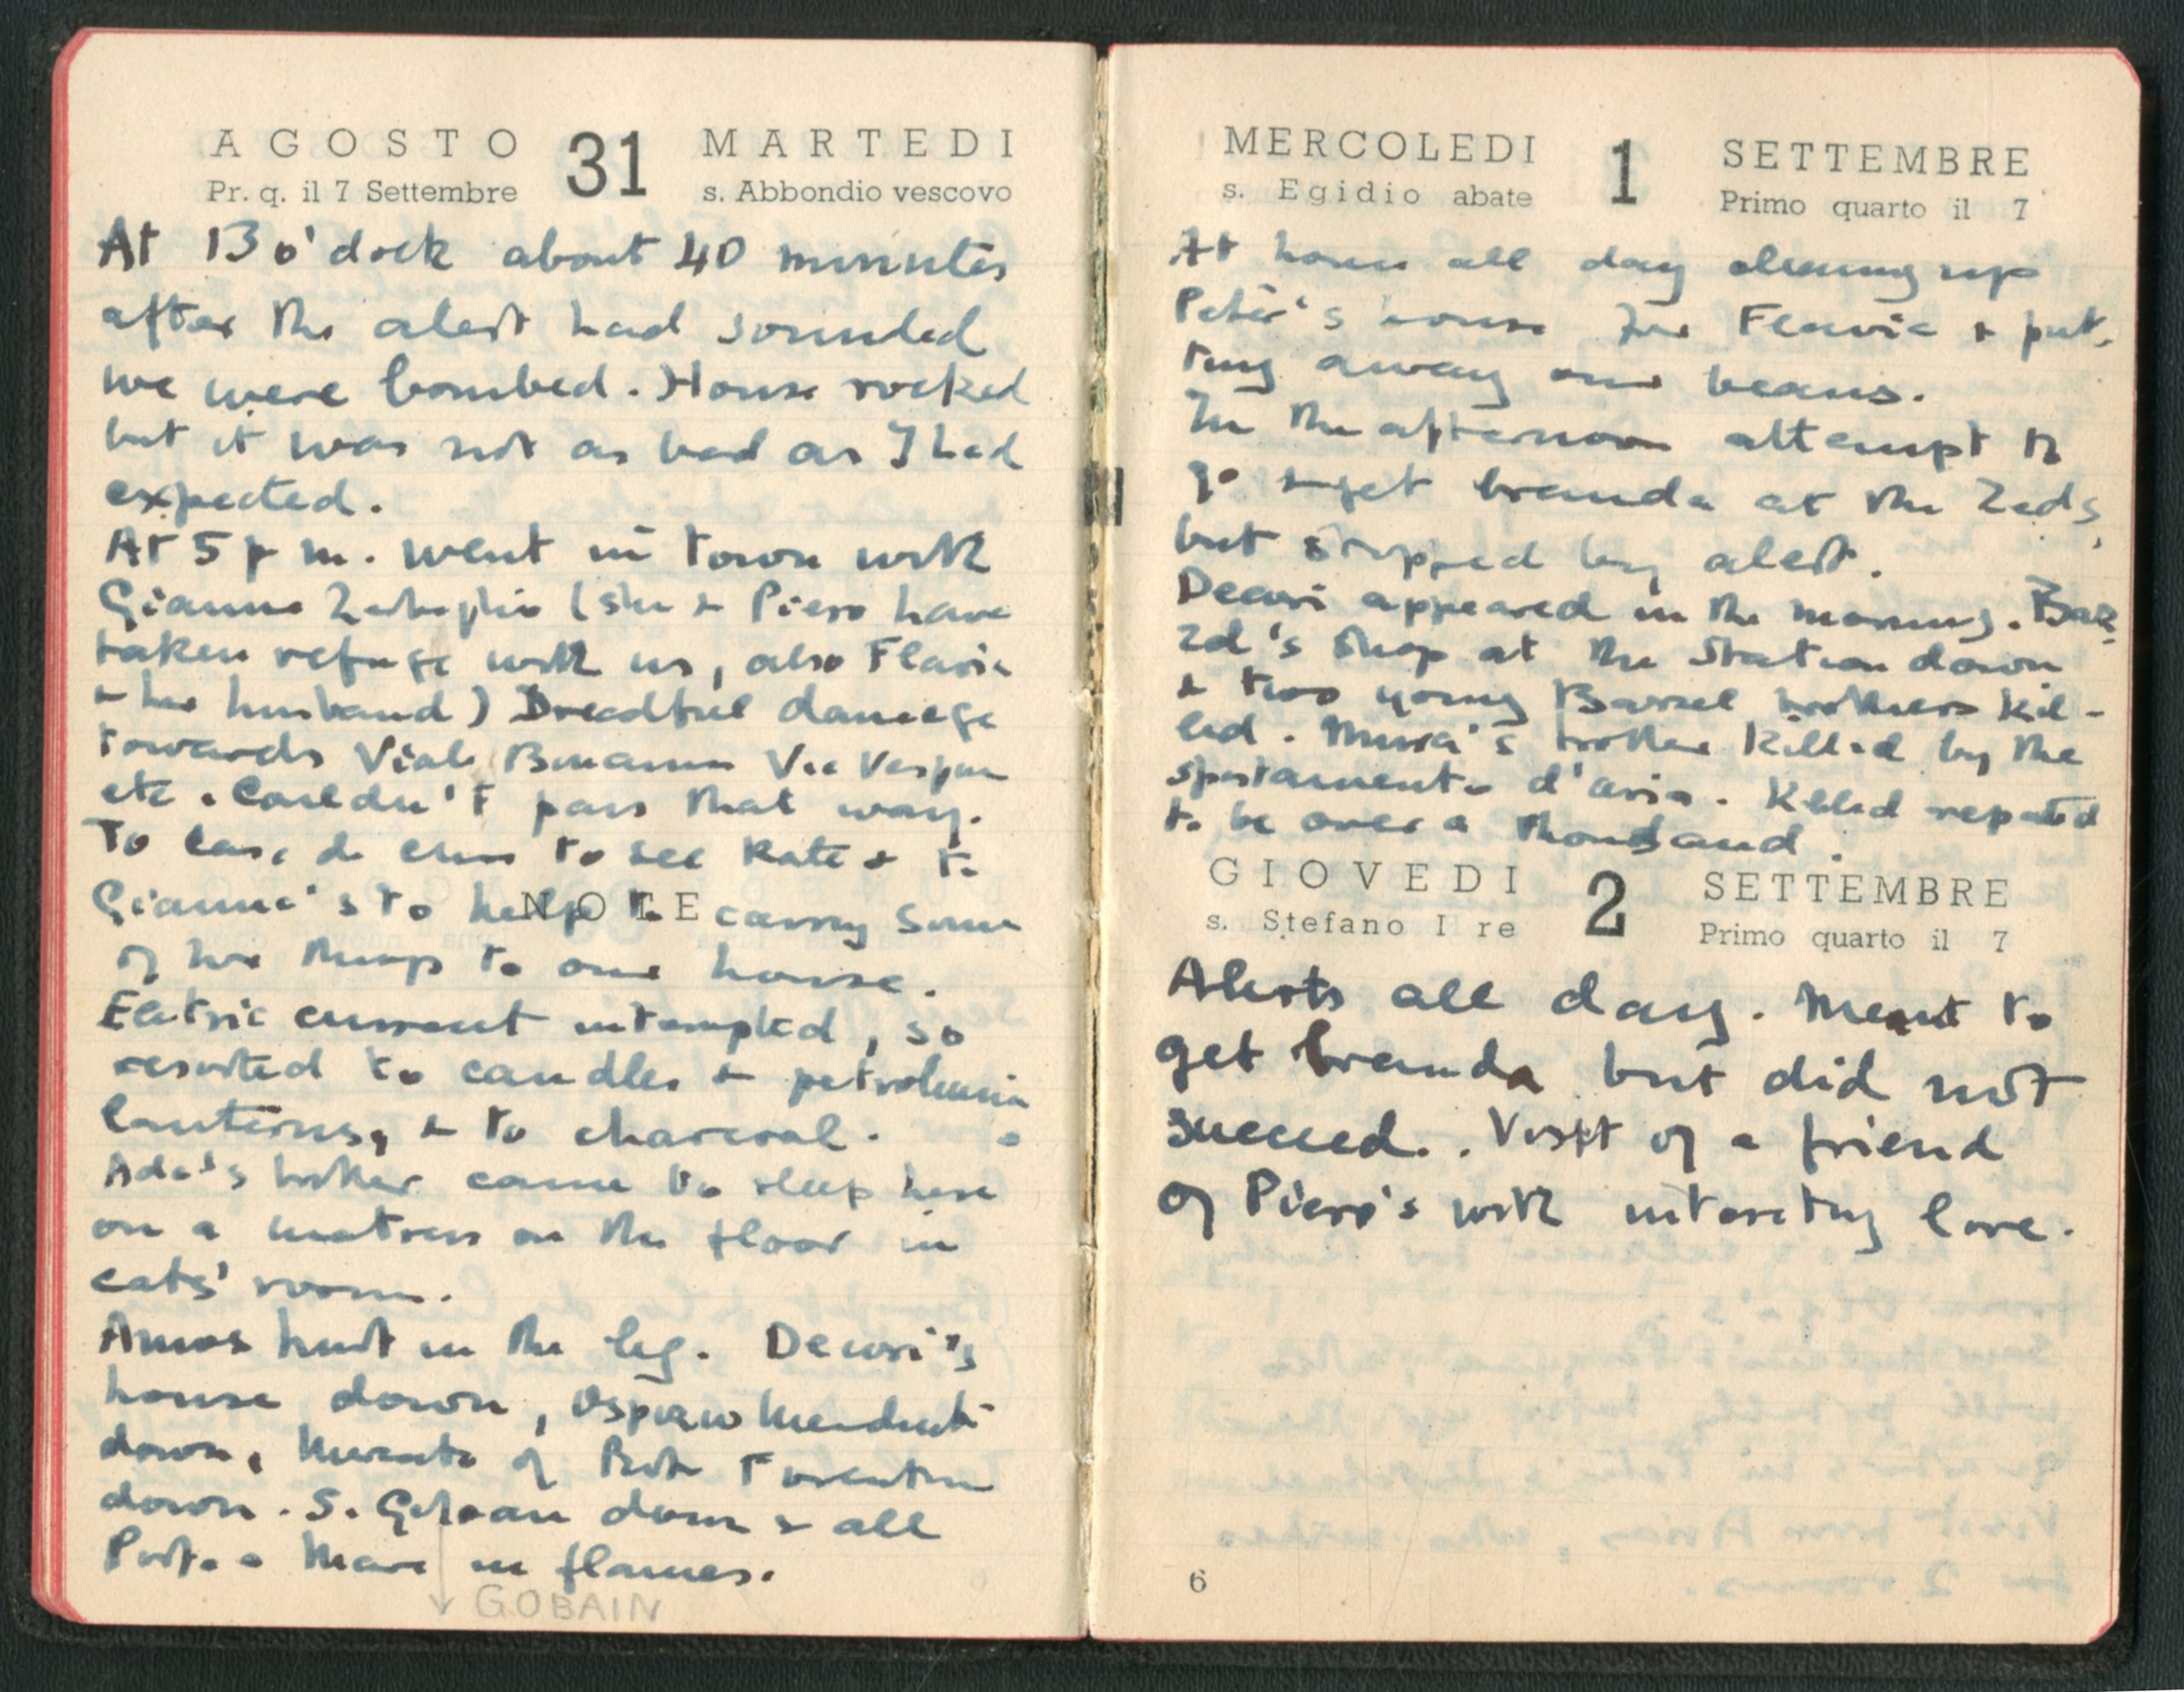 AGOSTO 31 MARTEDI
Pr. q. il 7 Settembre s. Abbondio vescovo
At 13 o'clock about 40 minutes
after the alert had sounded
we were bombed. House rocked
but it was not as bad as I had
expected.
At 5 p m. went in town with
Gianna (she & Piero have
taken refuge with us, also Flavia
& her husband) Dreadful damage
towards Viale Bonaini Via Vespucci
etc. Couldn't pass that way.
To to see Kate & to
Gianna's to help to carry some
NOTE
of her things to our house.
Eletric current interrupted, so
resorted to candles & petroleum
lanterns, & to charcoal.
Ada's brother came to sleep here
on a matress on the floor in
cats' room.
Amos hurt in the leg. Decori's
house down, Ospizio Mendicità
down, of Porta Fiorentina
down. S. Goban down & all
Porta a Mare in flames.
GOBAIN
MERCOLEDI 1 SETTEMBRE
s. Egidio abate Primo quarto il 7
At home all day cleaning up
Peter's house for Flavia & put-
ting away our beans.
In the afternoon attempt to
go & get branda at the Zeds,
but stopped by alert.
Decori appeared in the morning. Baz-
zel's shop at the station down
& two young Barzel brothers kil-
led. Mura's brother killed by the
spostamento d'aria. Killed reported
to be over a thousand.
GIOVEDI 2 SETTEMBRE
s. Stefano I re Primo quarto il 7
Alerts all day. Meant to
get branda but did not
succeed. Visit of a friend
of Piero's with interesting
6